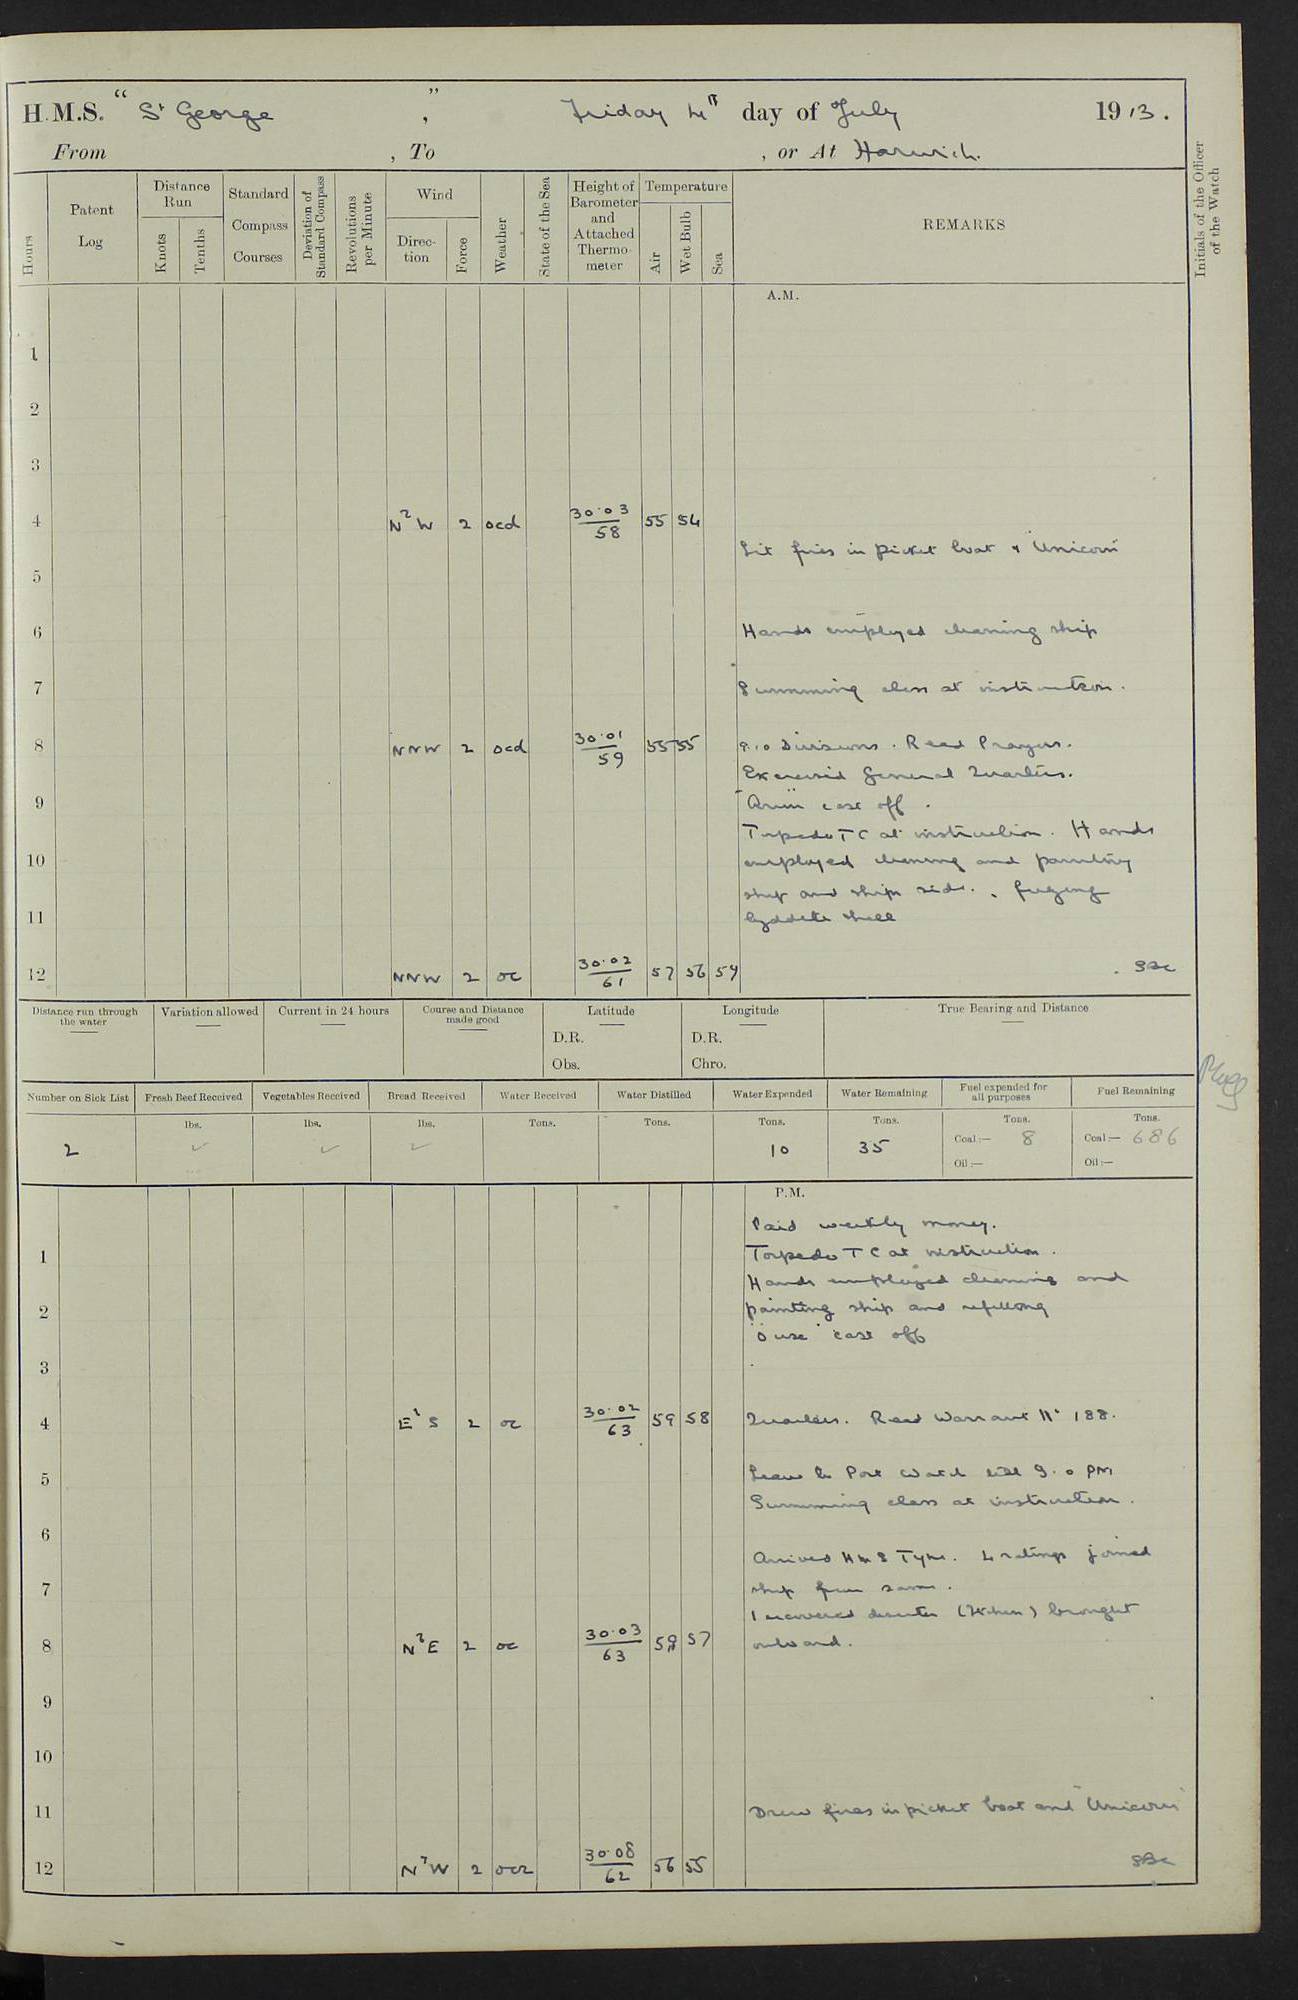 H.M.S. "St George", Friday 4th day of July 1913.
From , To , or At Harwich.
Hours
Patent Log
Distance Run
Knots
Tenths
Standard Compass Courses
Deviation of Standard Compass
Revolutions per Minute
Wind
Direction
Force
Weather
State of the Sea
Height of Barometer and Attached Thermometer
Temperature
Air
Wet Bulb
Sea
REMARKS
Initials of the Officer of the Watch
A.M.
1
2
3
4 N²W 2 ocd 30.03 58 55 54
Lit fires in picket boat & "Unicorn"
5
6 Hands employed cleaning ship
7 Swimming class at instruction.
8 NNW 2 ocd 30.01 59 55 55 9.10 Divisions. Read Prayers.
Exercised General Quarters.
9 cast off.
Torpedo TC at instruction. Hands
10 employed cleaning and painting
ship and ships side. fuzing
11 lyddite shell
12 NNW 2 oc 30.02 61 57 56 59
Distance run through the water
Variation allowed
Current in 24 hours
Course and Distance made good
Latitude
D.R.
Obs.
Longitude
D.R.
Chro.
True Bearing and Distance
Number on Sick List
Fresh Beef Received
Vegetables Received
Bread Received
Water Received
Water Distilled
Water Expended
Water Remaining
Fuel expended for all purposes
Fuel Remaining
lbs. lbs. lbs. Tons. Tons. Tons. Tons. Tons. Tons.
2 ✓ ✓ ✓ 10 35 Coal:— 8 Coal:— 686
Oil:— Oil:—
P.M.
Paid weekly money.
1 Torpedo TC at instruction.
Hands employed cleaning and
2 painting ship and refilling
"Ouse" cast off
3
4 E¹S 2 oc 30.02 63 59 58 Quarters. Read Warrant No 188.
5 Leave to Port Watch till 9.0 PM
Swimming class at instruction.
6
Arrived HMS Tyne. 4 ratings joined
7 ship from same.
1 recovered deserter brought
8 N²E 2 oc 30.03 63 59 57 onboard.
9
10
11 Drew fires in picket boat and "Unicorn"
12 N²W 2 ocr 30.08 62 56 55